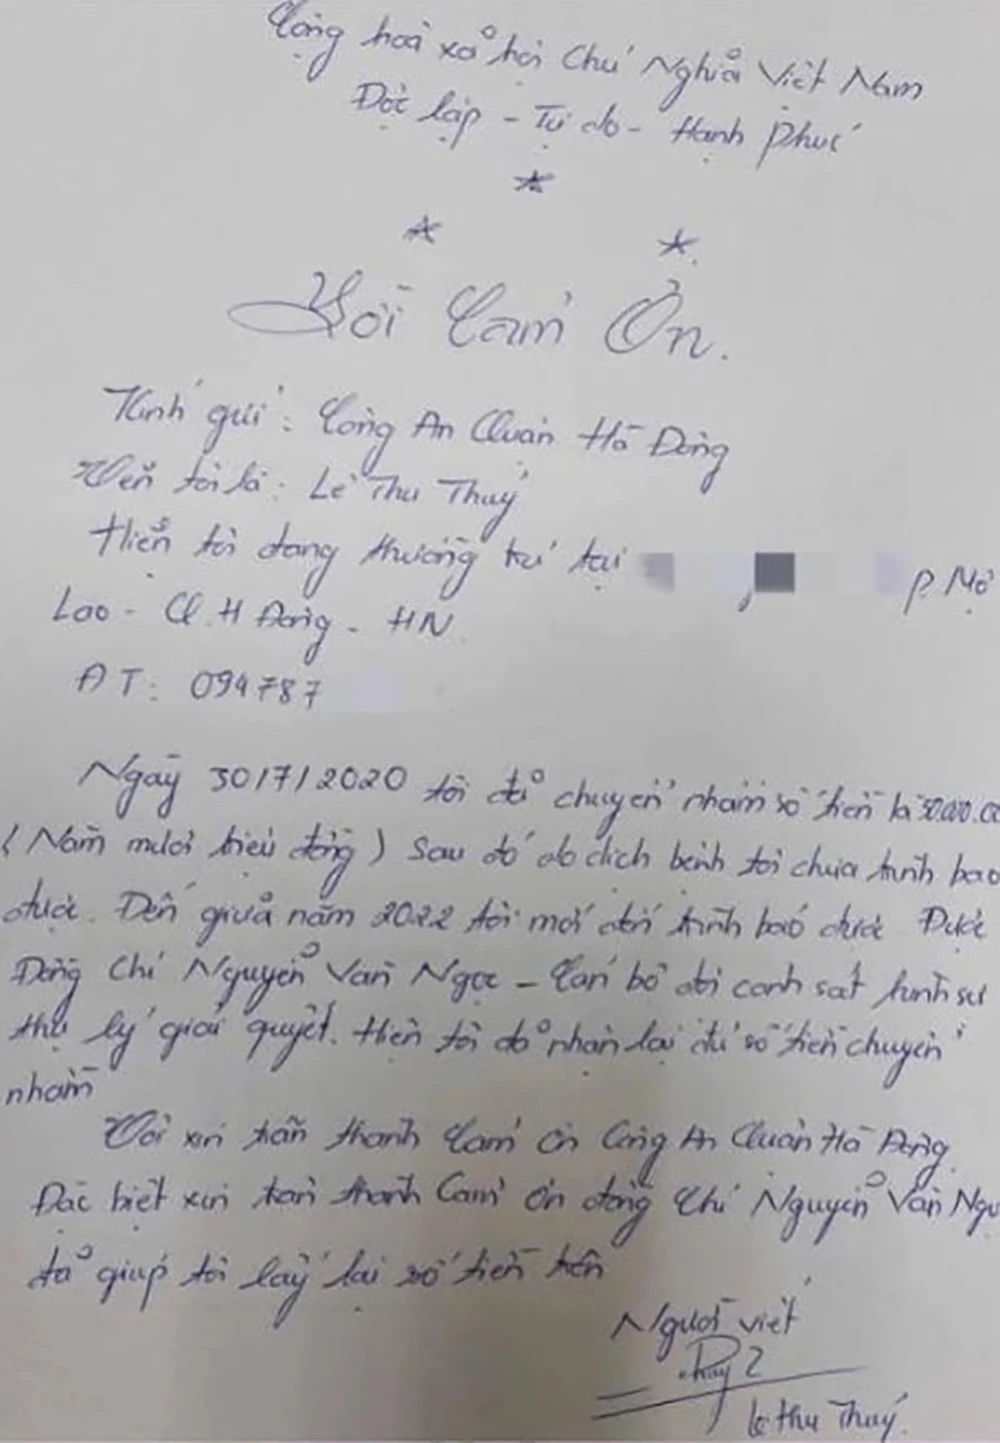 Cộng hoà xả hội Chủ Nghĩa Việt Nam
Độc lập - Tự do - Hạnh Phúc
Lời Cảm Ơn.
Kính gửi: Công An Quận Hà Đông
Tên tôi là: Lê Thu Thuỷ
Hiện tôi đang thường trú tại P. Mộ
Lao - Q. H Đông - HN
ĐT: 094787
Ngày 30/7/2020 tôi đả chuyển nhầm số tiền là
(Năm mươi triệu đồng) Sau đó do dịch bệnh tôi chưa trình báo
được. Đến giửa năm 2022 tôi mới đến trình báo được Được
Đồng Chí Nguyển Văn Ngọc - Cán bộ đội cảnh sát hình sự
thụ lý giải quyết. Hiện tôi đả nhận lại đủ số tiền chuyển
nhầm
Tôi xin trân thành Cảm ơn Công An Quận Hà Đông
Đặc biệt xin trân thành Cảm ơn đồng Chí Nguyển Văn
đả giúp tôi lấy lại số tiền trên
Người viết
Thuỷ
Lê Thu Thuỷ